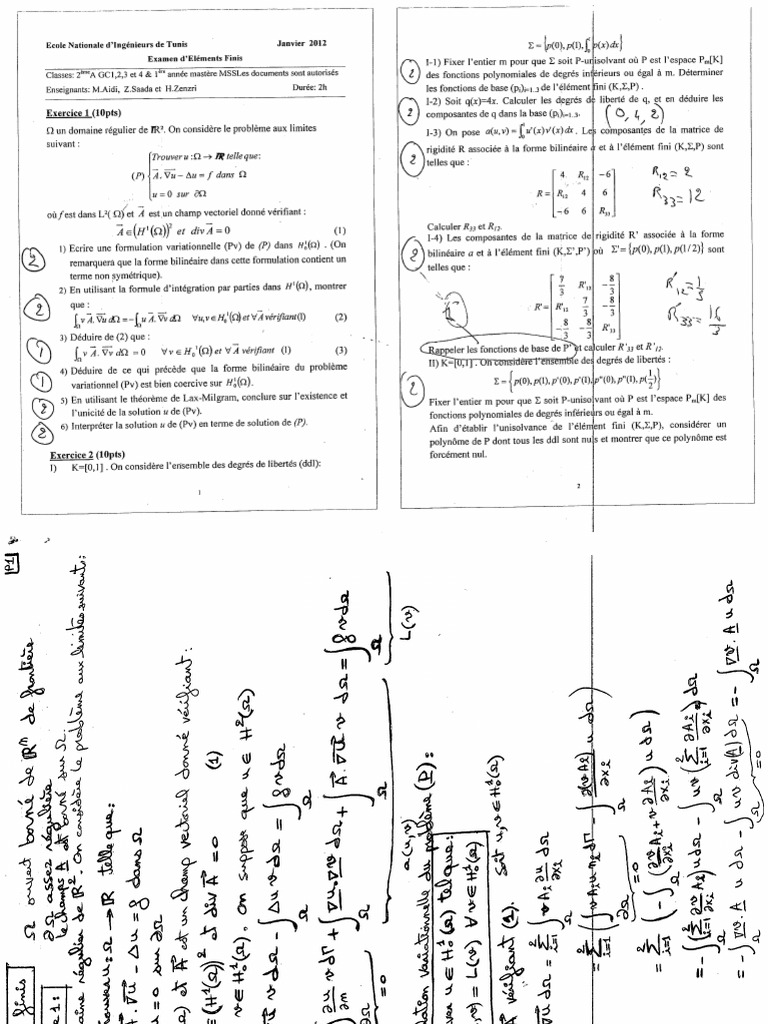 Ecole Nationale d'Ingénieurs de Tunis Janvier 2012
Examen d'Eléments Finis
Classes: 2èmeA GC1,2,3 et 4 & 1ère année mastère MSSLes documents sont autorisés
Enseignants: M.Aidi, Z.Saada et H.Zenzri Durée: 2h
Exercice 1 (10pts)
Ω un domaine régulier de IR². On considère le problème aux limites
suivant :
(P) { Trouver u : Ω → IR telle que:
A⃗.∇u⃗ − Δu = f dans Ω
u = 0 sur ∂Ω
où f est dans L²( Ω) et A⃗ est un champ vectoriel donné vérifiant :
A⃗ ∈ (H¹(Ω))² et div A⃗ = 0 (1)
② 1) Ecrire une formulation variationnelle (Pv) de (P) dans H¹₀(Ω) . (On
remarquera que la forme bilinéaire dans cette formulation contient un
terme non symétrique).
② 2) En utilisant la formule d'intégration par parties dans H¹(Ω), montrer
que :
∫Ω v A⃗.∇u⃗ dΩ = −∫Ω u A⃗.∇v⃗ dΩ ∀u,v ∈ H₀¹(Ω) et ∀A⃗ vérifiant(1) (2)
① 3) Déduire de (2) que :
∫Ω v A⃗.∇v⃗ dΩ = 0 ∀v ∈ H₀¹(Ω) et ∀A⃗ vérifiant (1) (3)
① 4) Déduire de ce qui précède que la forme bilinéaire du problème
variationnel (Pv) est bien coercive sur H¹₀(Ω).
② 5) En utilisant le théorème de Lax-Milgram, conclure sur l'existence et
l'unicité de la solution u de (Pv).
② 6) Interpréter la solution u de (Pv) en terme de solution de (P).
Exercice 2 (10pts)
I) K=[0,1] . On considère l'ensemble des degrés de libertés (ddl):
1
Σ = {p(0), p(1), ∫₀¹ p(x) dx}
② I-1) Fixer l'entier m pour que Σ soit P-unisolvant où P est l'espace Pm[K]
des fonctions polynomiales de degrés inférieurs ou égal à m. Déterminer
les fonctions de base (pi)i=1..3 de l'élément fini (K,Σ,P) .
② I-2) Soit q(x)=4x. Calculer les degrés de liberté de q, et en déduire les
composantes de q dans la base (pi)i=1..3. (0, 4, 2)
② I-3) On pose a(u,v) = ∫₀¹ u'(x)v'(x) dx . Les composantes de la matrice de
rigidité R associée à la forme bilinéaire a et à l'élément fini (K,Σ,P) sont
telles que :
R = [4 R12 −6
R12 4 6
−6 6 R33]
R12 = 2
R33 = 12
Calculer R33 et R12.
② I-4) Les composantes de la matrice de rigidité R' associée à la forme
bilinéaire a et à l'élément fini (K,Σ',P') où Σ' = {p(0), p(1), p(1/2)} sont
telles que :
R' = [7/3 R'12 −8/3
R'12 7/3 −8/3
−8/3 −8/3 R'33]
R'12 = 1/3
R'33 = 16/3
Rappeler les fonctions de base de P' et calculer R'33 et R'12.
II) K=[0,1] . On considère l'ensemble des degrés de libertés :
Σ = {p(0), p(1), p'(0), p'(1), p''(0), p''(1), p(1/2)}
② Fixer l'entier m pour que Σ soit P-unisolvant où P est l'espace Pm[K] des
fonctions polynomiales de degrés inférieurs ou égal à m.
Afin d'établir l'unisolvance de l'élément fini (K,Σ,P), considérer un
polynôme de P dont tous les ddl sont nuls et montrer que ce polynôme est
forcément nul.
2
P1
Ω ouvert borné de IRⁿ de frontière
∂Ω assez régulière
le champs A est borné sur Ω.
finis
e 1 :
aine régulier de IR². On considère le problème aux limites suivant :
rouver u : Ω → IR telle que :
A⃗.∇u⃗ − Δu = f dans Ω
u = 0 sur ∂Ω
Ω) et A⃗ est un champ vectoriel donné vérifiant :
∈ (H¹(Ω))² et div A⃗ = 0 (1)
v ∈ H¹₀(Ω), on suppose que u ∈ H²(Ω)
∇u⃗ v dΩ − ∫Ω Δu v dΩ = ∫Ω f v dΩ
∂u/∂n v dΓ + ∫Ω ∇u.∇v dΩ + ∫Ω A⃗.∇u⃗ v dΩ = ∫Ω f v dΩ
= 0 a(u,v) L(v)
lation variationnelle du problème (P) :
ver u ∈ H¹₀(Ω) tel que :
,v) = L(v) ∀ v ∈ H¹₀(Ω)
A⃗ vérifiant (1). Soit u,v ∈ H¹₀(Ω)
∇u dΩ = Σ²i=1 ∫Ω v Ai ∂u/∂xi dΩ
= Σ²i=1 (∫∂Ω v Ai u ni dΓ − ∫Ω ∂(v Ai)/∂xi u dΩ)
= 0
= Σ²i=1 (−∫Ω (∂v/∂xi Ai + v ∂Ai/∂xi) u dΩ)
= −∫Ω (Σ²i=1 ∂v/∂xi Ai) u dΩ − ∫Ω uv (Σ²i=1 ∂Ai/∂xi) dΩ
= −∫Ω ∇v.A u dΩ − ∫Ω uv div(A) dΩ = −∫Ω ∇v.A u dΩ
= 0